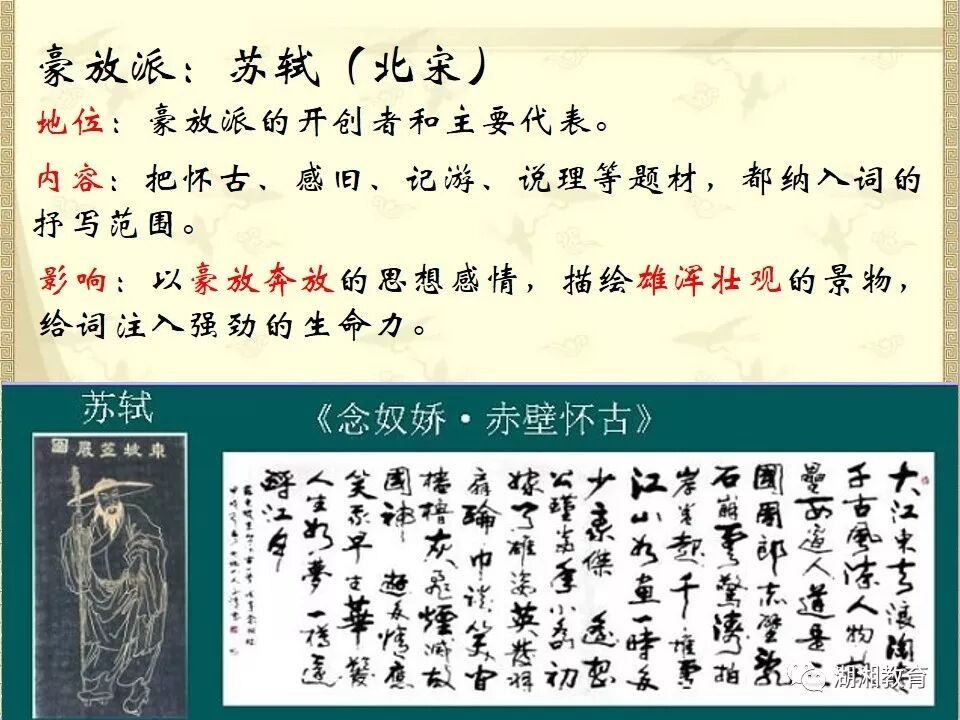 豪放派：苏轼（北宋）
地位：豪放派的开创者和主要代表。
内容：把怀古、感旧、记游、说理等题材，都纳入词的
抒写范围。
影响：以豪放奔放的思想感情，描绘雄浑壮观的景物，
给词注入强劲的生命力。
苏轼
東坡笠屐圖
《念奴娇·赤壁怀古》
大江東去浪淘
千古風流人物
壘西邊人道是
國周郎赤壁亂
石崩雲驚濤拍
岸卷起千堆雪
江山如畫一時多
少豪傑遙想
公瑾當年小喬初
嫁了雄姿英發羽
扇綸巾談笑間
檣櫓灰飛煙滅故
國神遊多情應
笑我早生華髮
人生如夢一樽還
酹江月
湖湘教育